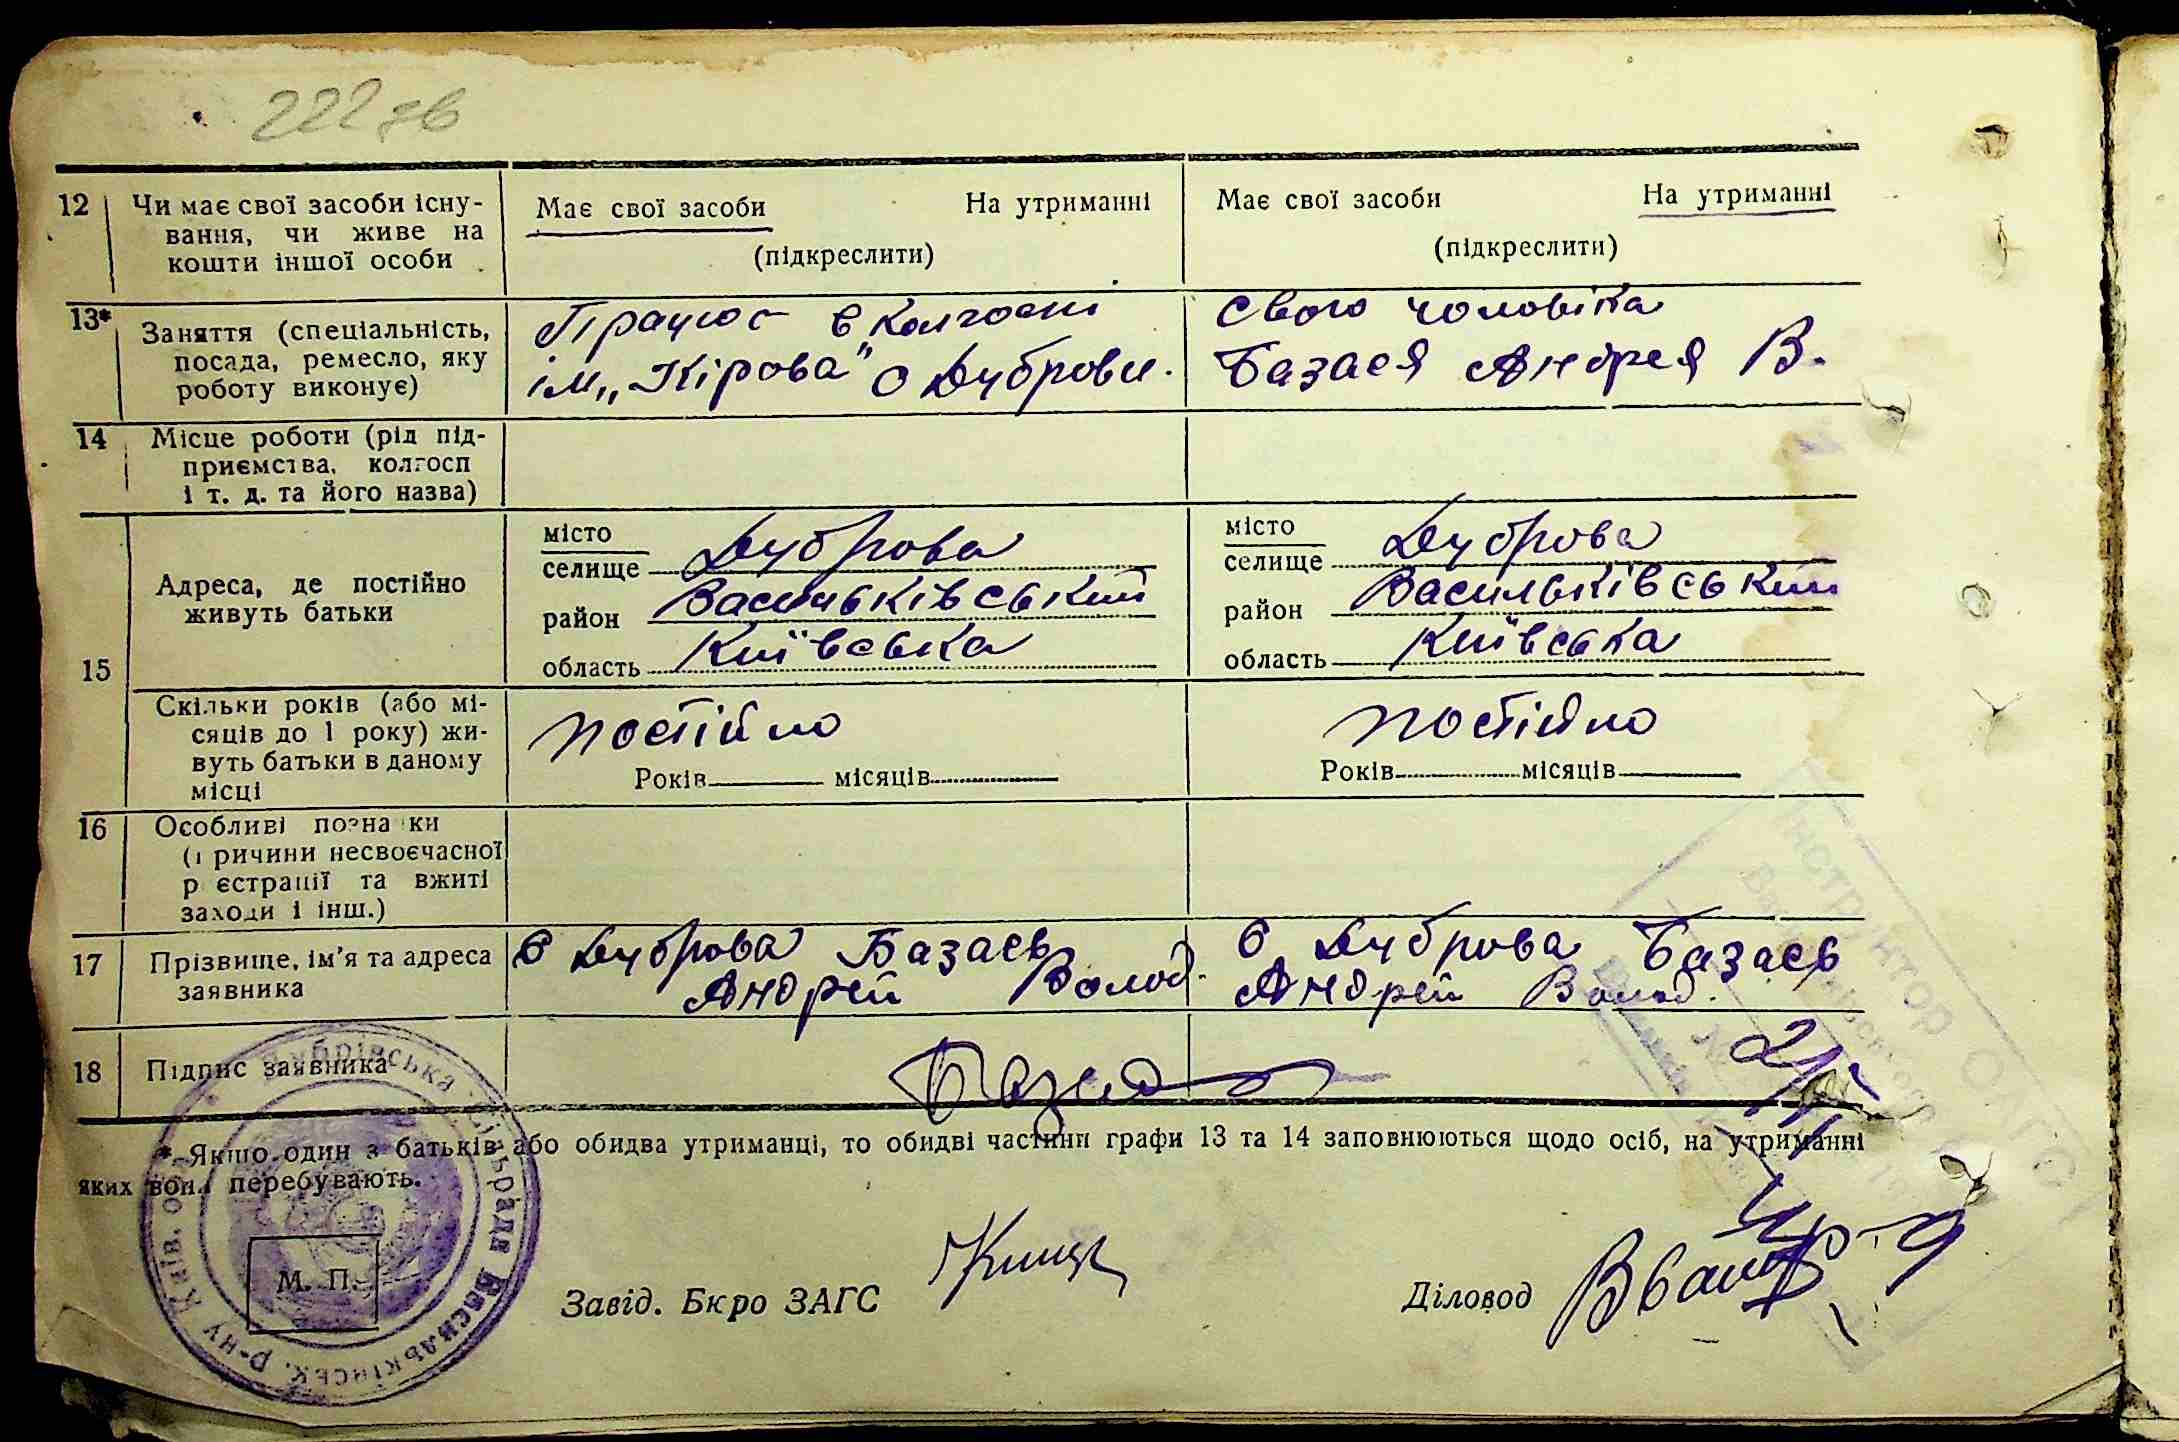 222 зв
12 Чи має свої засоби існу-
вання, чи живе на
кошти іншої особи
Має свої засоби На утриманні
(підкреслити)
Має свої засоби На утриманні
(підкреслити)
13* Заняття (спеціальність,
посада, ремесло, яку
роботу виконує)
Працює в колгоспі
ім. „Кірова" с Дуброви.
Свого чоловіка
Базаєя Андрея В.
14 Місце роботи (рід під-
приємства, колгосп
і т. д. та його назва)
15 Адреса, де постійно
живуть батьки
місто
селище Дуброва
район Васильківський
область Київська
місто
селище Дуброва
район Васильківський
область Київська
Скільки років (або мі-
сяців до 1 року) жи-
вуть батьки в даному
місці
постійно
Років місяців
постійно
Років місяців
16 Особливі познаки
(причини несвоєчасної
реєстрації та вжиті
заходи і інш.)
17 Прізвище, ім'я та адреса
заявника
с Дуброва Базаєв
Андрей Волод.
с Дуброва Базаєв
Андрей Волод.
18 Підпис заявника
* Якщо один з батьків або обидва утриманці, то обидві частини графи 13 та 14 заповнюються щодо осіб, на утриманні
яких вони перебувають.
М. П.
Завід. Бкро ЗАГС
Діловод
Дубрівська сільрада Васильківськ. р-ну Київ. обл.